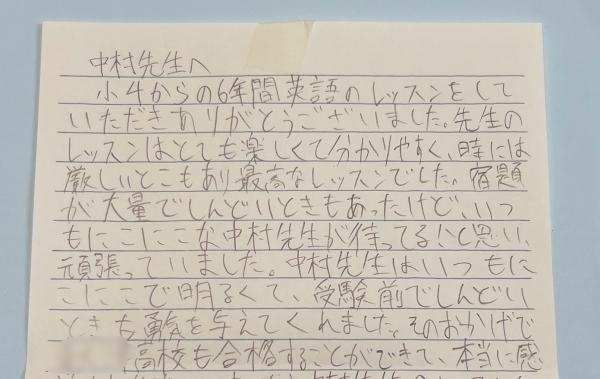 中村先生へ
小4からの6年間英語のレッスンをして
いただきありがとうございました。先生の
レッスンはとても楽しくて分かりやすく、時には
厳しいとこもあり最高なレッスンでした。宿題
が大量でしんどいときもあったけど、いつ
もにこにこな中村先生が待ってる!と思い、
頑張っていました。中村先生はいつもに
こにこで明るくて、受験前でしんどい
ときも勇気を与えてくれました。そのおかげで
高校も合格することができて、本当に感